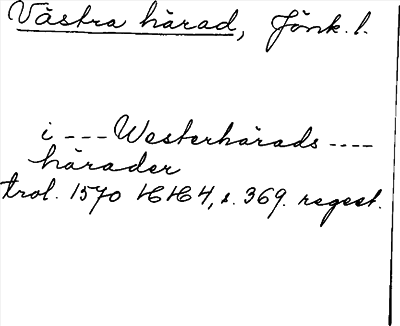 Västra härad, Jönk. l.
i --- Westerhärads ----
härader
trol. 1570 HH4, s. 369. regest.